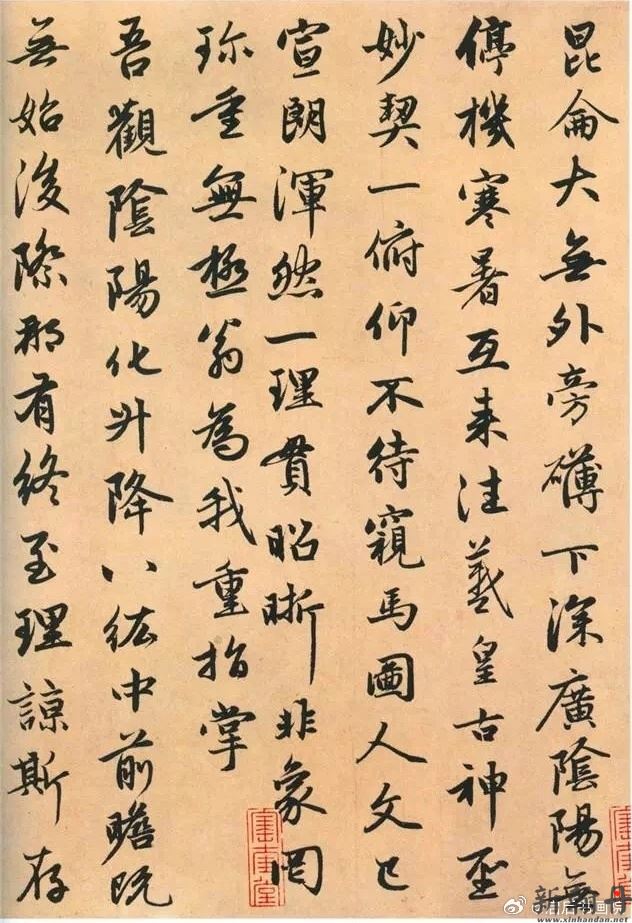 昆侖大無外旁礴下深廣陰陽無
停機寒暑互来往羲皇古神聖
妙契一俯仰不待窺馬圖人文已
宣朗渾然一理貫昭晰非象罔
珎重無極翁為我重指掌
吾觀陰陽化升降八紘中前瞻既
無始後際那有終至理諒斯存
www.xinhandan.net